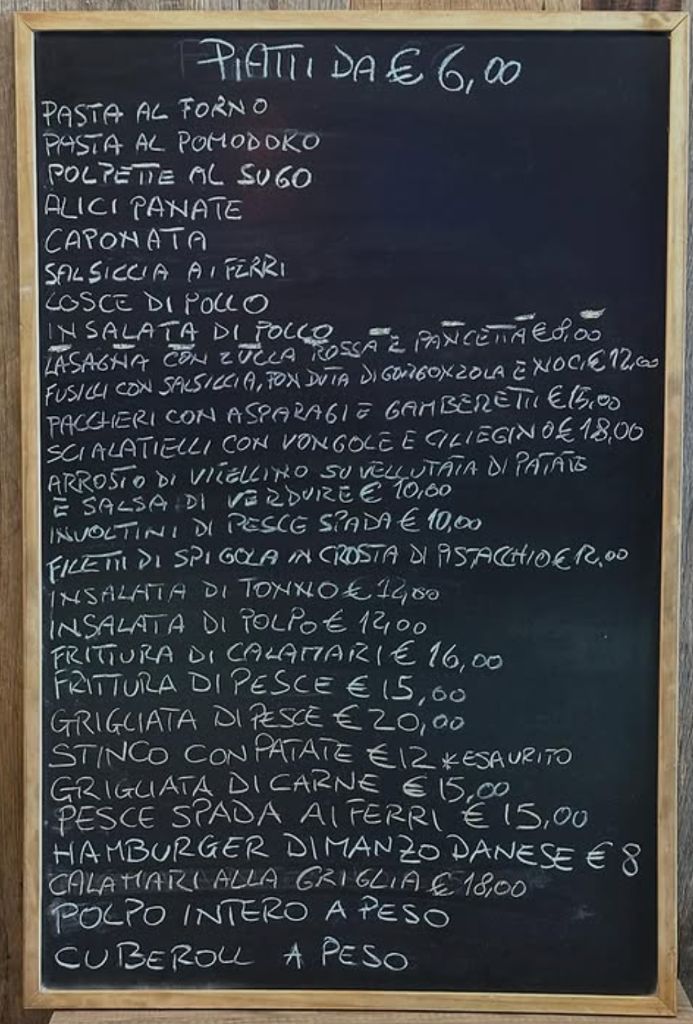 PIATTI DA € 6,00
PASTA AL FORNO
PASTA AL POMODORO
POLPETTE AL SUGO
ALICI PANATE
CAPONATA
SALSICCIA AI FERRI
COSCE DI POLLO
INSALATA DI POLLO
LASAGNA CON ZUCCA ROSSA E PANCETTA €8,00
FUSILLI CON SALSICCIA, FONDUTA DI GORGONZOLA E NOCI € 12,00
PACCHERI CON ASPARAGI E GAMBERETTI €15,00
SCIALATIELLI CON VONGOLE E CILIEGINO € 18,00
ARROSTO DI VITELLINO SU VELLUTATA DI PATATE
E SALSA DI VERDURE € 10,00
INVOLTINI DI PESCE SPADA € 10,00
FILETTI DI SPIGOLA IN CROSTA DI PISTACCHIO € 12,00
INSALATA DI TONNO € 12,00
INSALATA DI POLPO € 12,00
FRITTURA DI CALAMARI € 16,00
FRITTURA DI PESCE € 15,00
GRIGLIATA DI PESCE € 20,00
STINCO CON PATATE €12 *ESAURITO
GRIGLIATA DI CARNE € 15,00
PESCE SPADA AI FERRI € 15,00
HAMBURGER DI MANZO DANESE € 8
CALAMARI ALLA GRIGLIA € 18,00
POLPO INTERO A PESO
CUBEROLL A PESO